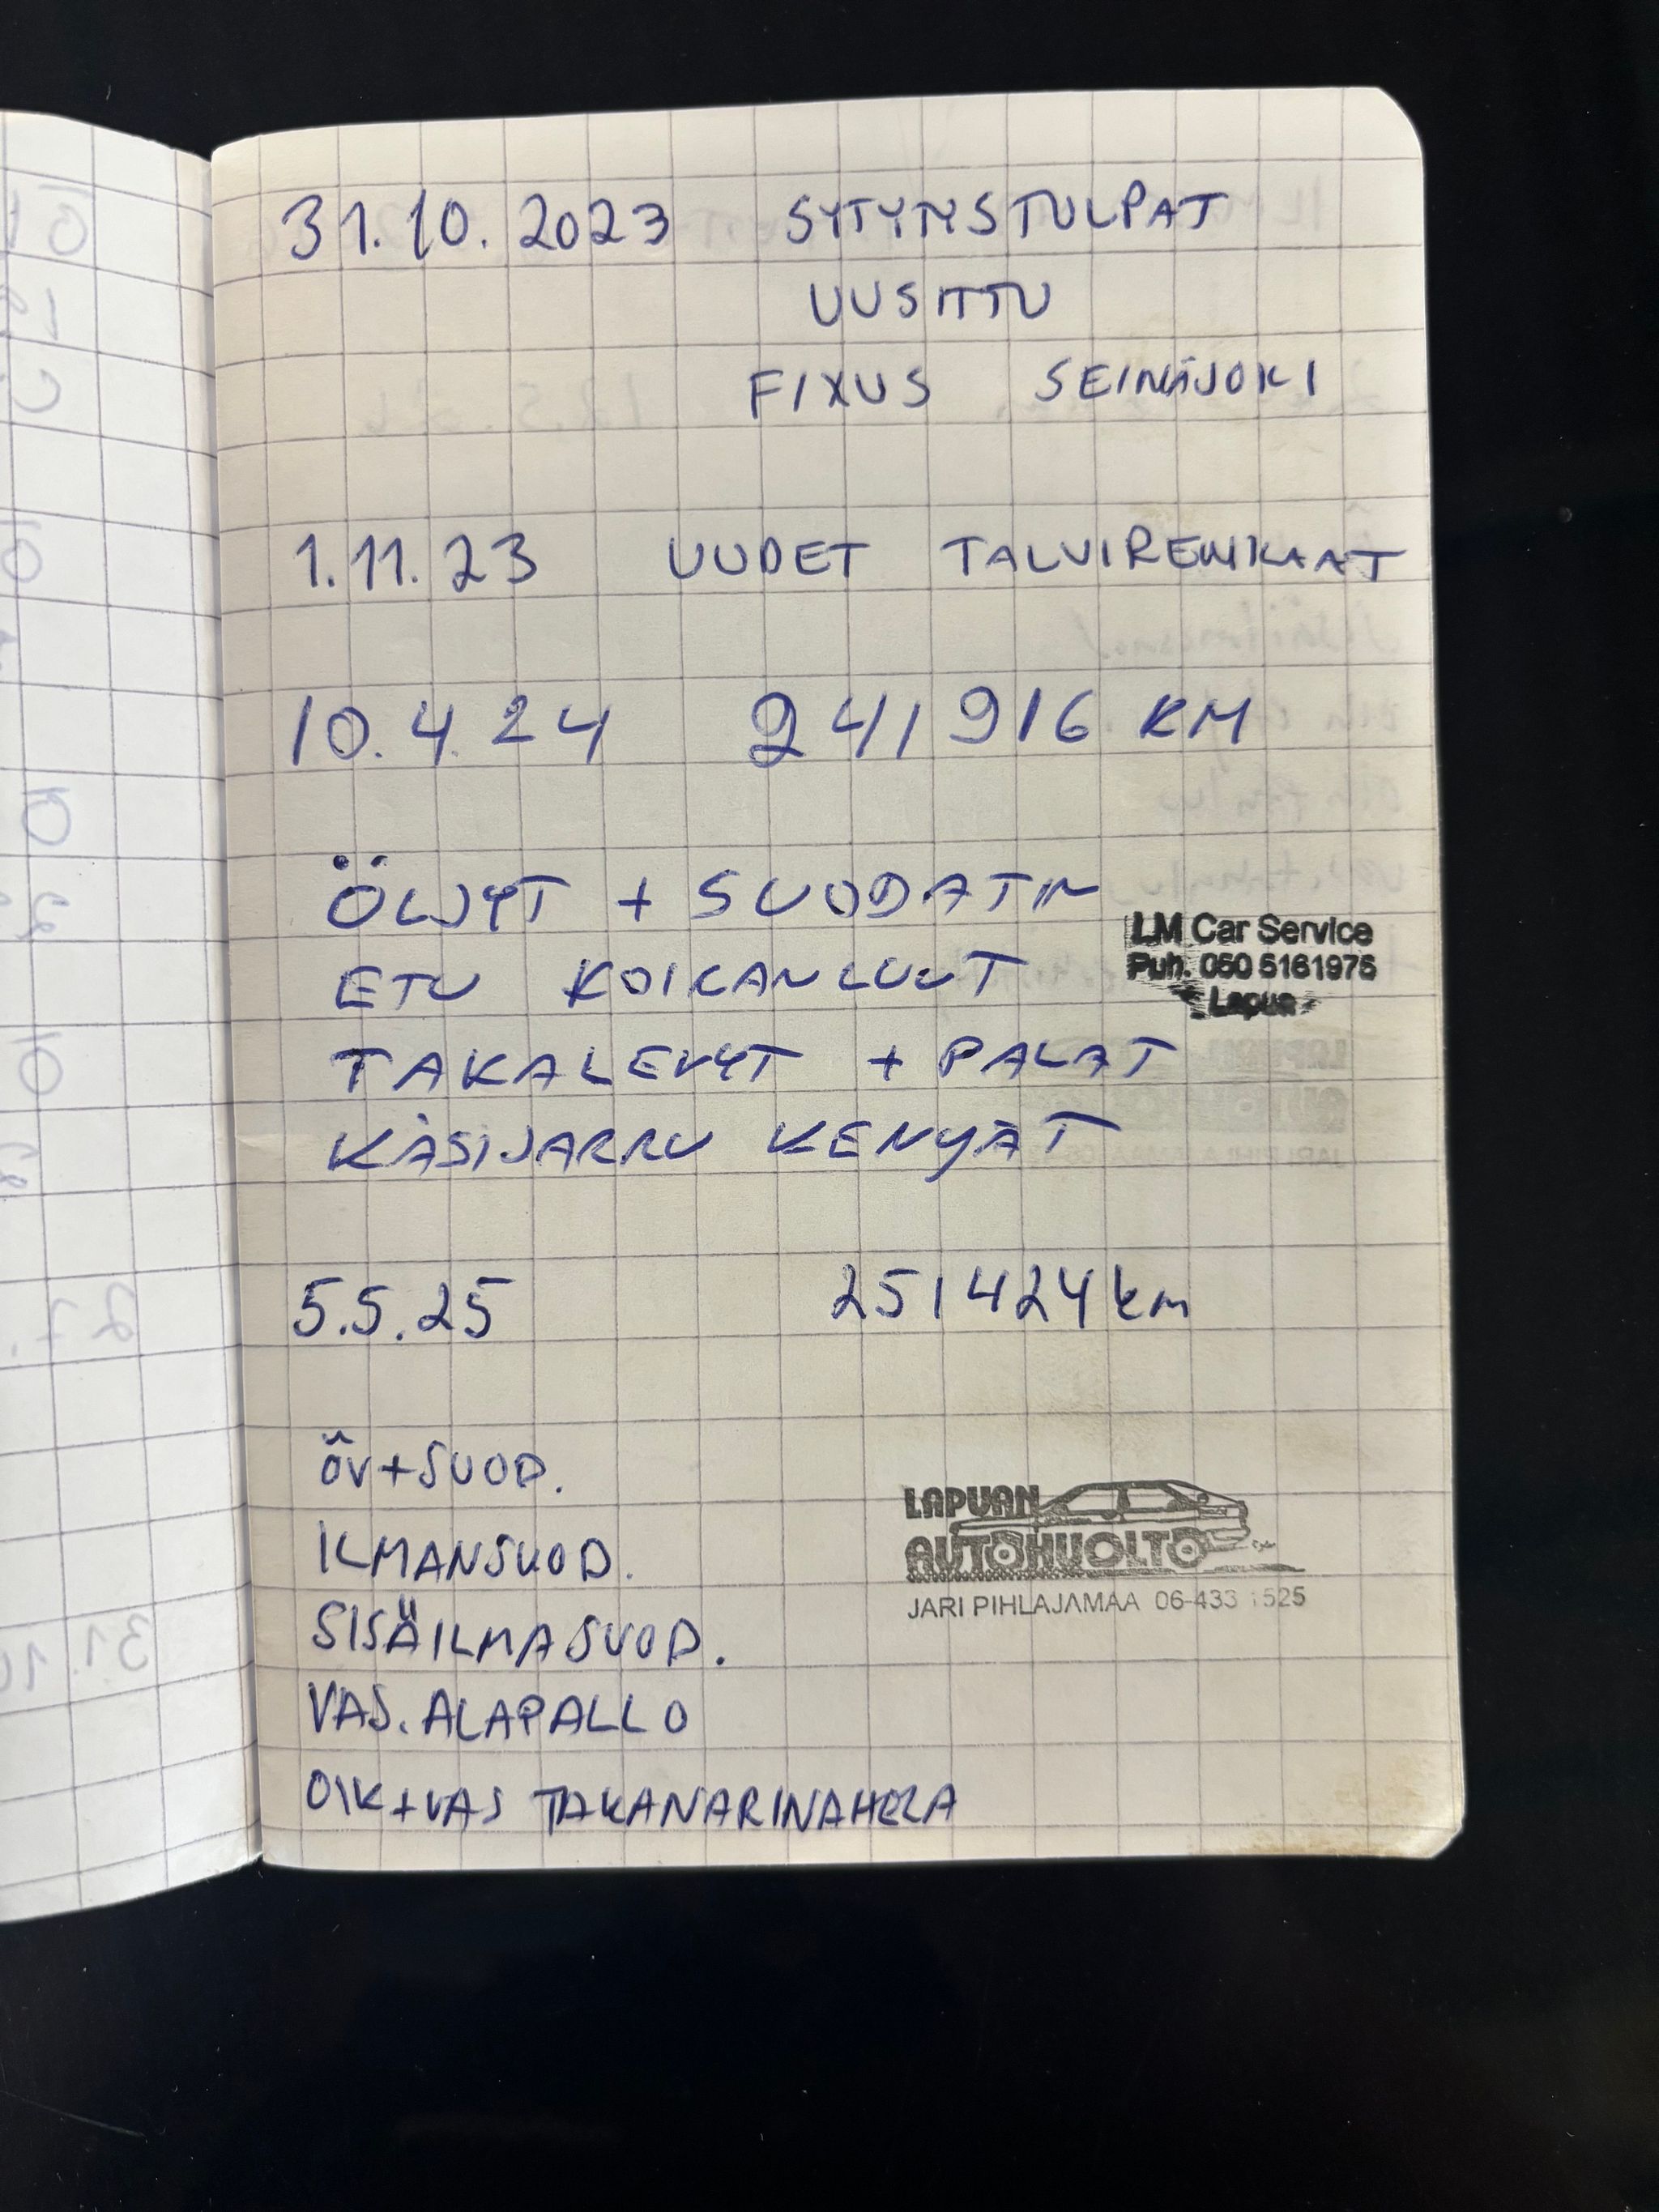 31.10.2023 SYTYTYSTULPAT
UUSITTU
FIXUS SEINÄJOKI
1.11.23 UUDET TALVIRENKAAT
10.4.24 241916 KM
ÖLJYT + SUODATIN
ETU KOIRANLUUT
LM Car Service
Puh. 050 5161975
Lapua
TAKALEVYT + PALAT
KÄSIJARRU KENGÄT
5.5.25 251424 km
ÖV+SUOD.
ILMANSUOD.
SISÄILMASUOD.
VAS. ALAPALLO
OIK+VAS TAKANAPA
LAPUAN
AUTOHUOLTO
JARI PIHLAJAMAA 06-433 1525